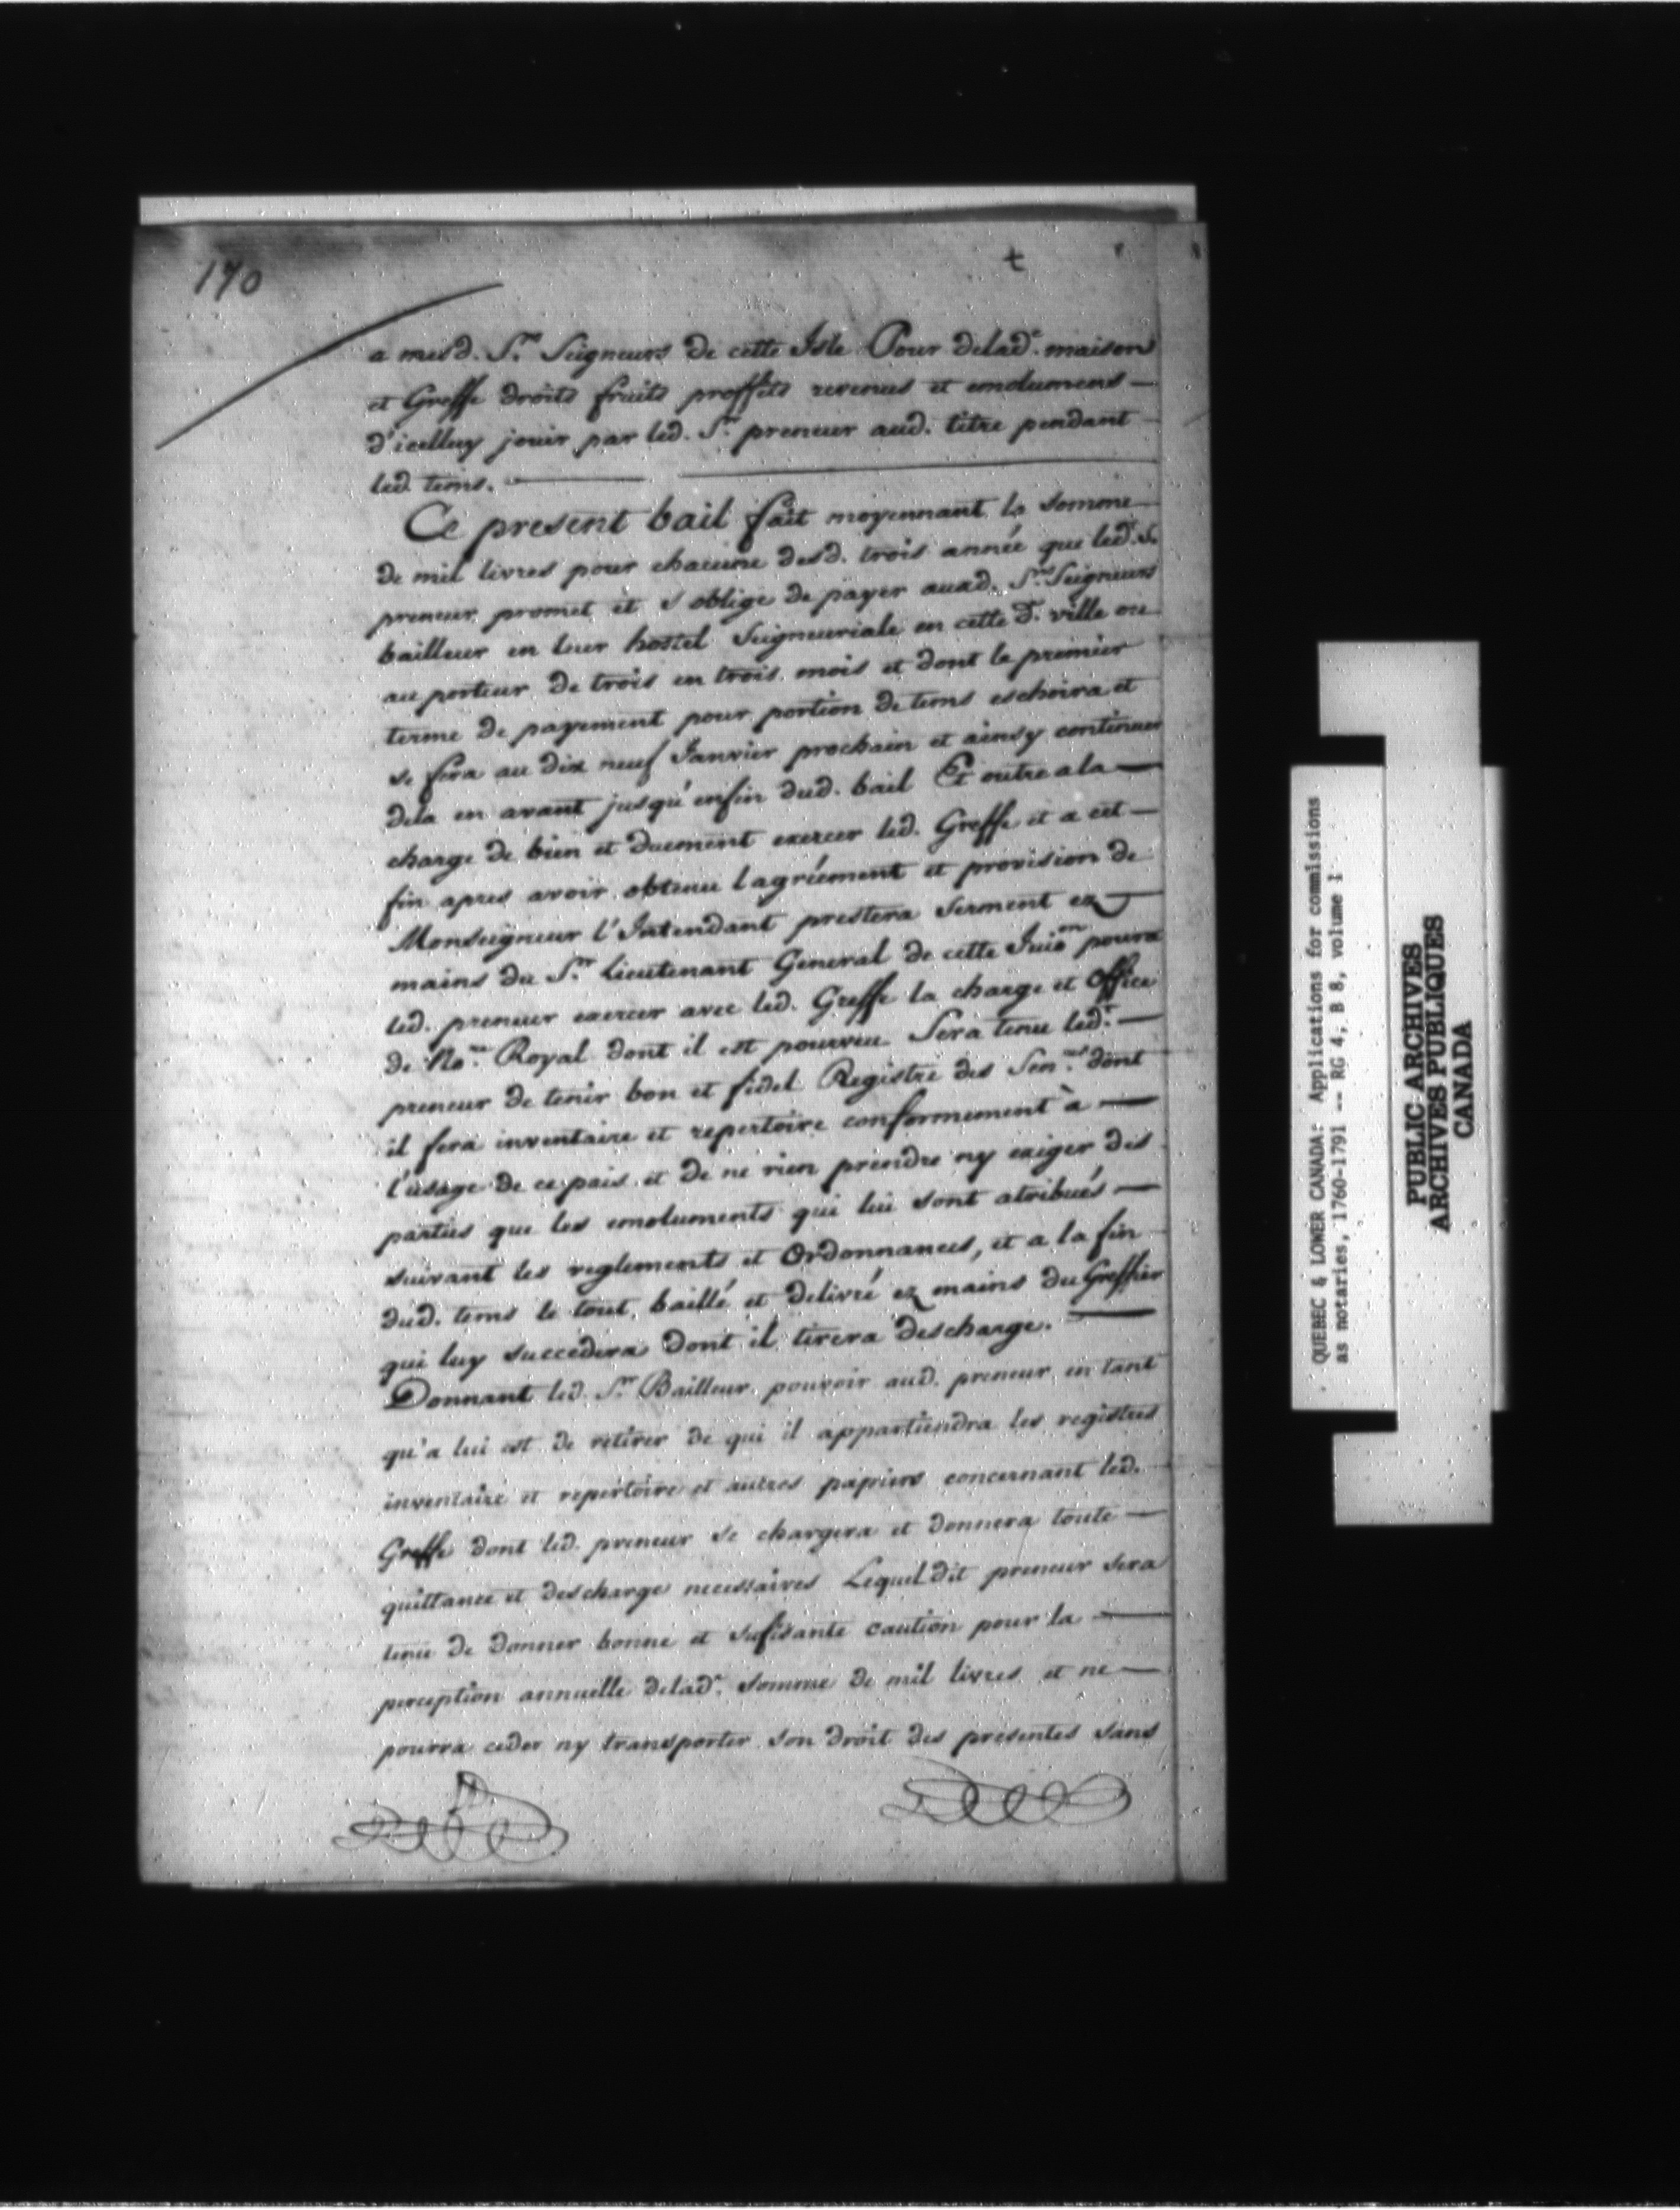 170
t
a mesd. Srs Seigneurs de cette Isle Pour delade. maison
et Greffe droits fruits proffits revenus et emolumens —
d'icelluy jouir par led. Sr. preneur aud. titre pendant
led. tems.
Ce present bail fait moyennant la somme
de mil livres pour chacune desd. trois année que led. S.
preneur promet et s oblige de payer auxd. Srs Seigneurs
bailleur en leur hostel Seigneuriale en cette d. ville ou
au porteur de trois en trois mois et dont le premier
terme de payement pour portion de tems eschoira et
se fera au dix neuf Janvier prochain et ainsy continuer
dela en avant jusqu'enfin dud. bail Et outre a la —
charge de bien et duement exercer led. Greffe et a cet —
fin apres avoir obtenu l'agréement et provision de
Monseigneur l'Intendant prestera serment ez
mains du Sr. Lieutenant General de cette Juion pourra
led. preneur exercer avec led. Greffe la charge et Office
de Nore. Royal dont il est pourveu Sera tenu led. —
preneur de tenir bon et fidel Registre des Sences dont
il fera inventaire et repertoire conformement à —
l'usage de ce pais et de ne rien prendre ny exiger des
parties que les emoluments qui lui sont atribués —
suivant les reglements et Ordonnances, et a la fin
dud. tems le tout baillé et delivré ez mains du Greffier
qui luy succedera dont il tirera descharge. —
Donnant led. Sr. Bailleur pouvoir aud. preneur en tant
qu'a lui est de retirer de qui il appartiendra les registres
inventaire et repertoire et autres papiers concernant led.
Greffe dont led. preneur se chargera et donnera toute —
quittance et descharge necessaires Lequel dit preneur sera
tenu de donner bonne et sufisante caution pour la —
perception annuelle delade. somme de mil livres et ne —
pourra ceder ny transporter son droit des presentes sans
QUEBEC & LOWER CANADA: Applications for commissions
as notaries, 1760-1791 -- RG 4, B 8, volume 1
PUBLIC ARCHIVES
ARCHIVES PUBLIQUES
CANADA